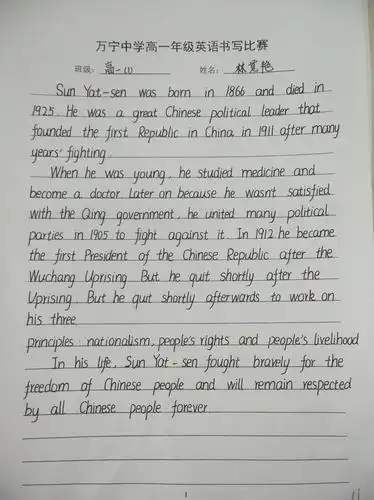 万宁中学高一年级英语书写比赛
班级: 高一(1) 姓名: 林
Sun Yat-sen was born in 1866 and died in
1925. He was a great Chinese political leader that
founded the first Republic in China in 1911 after many
years' fighting.
When he was young, he studied medicine and
become a doctor. Later on because he wasn't satisfied
with the Qing government, he united many political
parties in 1905 to fight against it. In 1912 he became
the first President of the Chinese Republic after the
Wuchang Uprising. But he quit shortly after the
Uprising. But he quit shortly afterwards to work on
his three
principles: nationalism, people's rights and people's livelihood
In his life, Sun Yat-sen fought bravely for the
freedom of Chinese people and will remain respected
by all Chinese people forever.
1